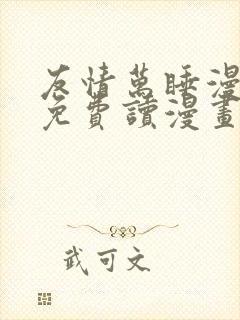 友情萬睡漫
免費讀漫畫
武可文